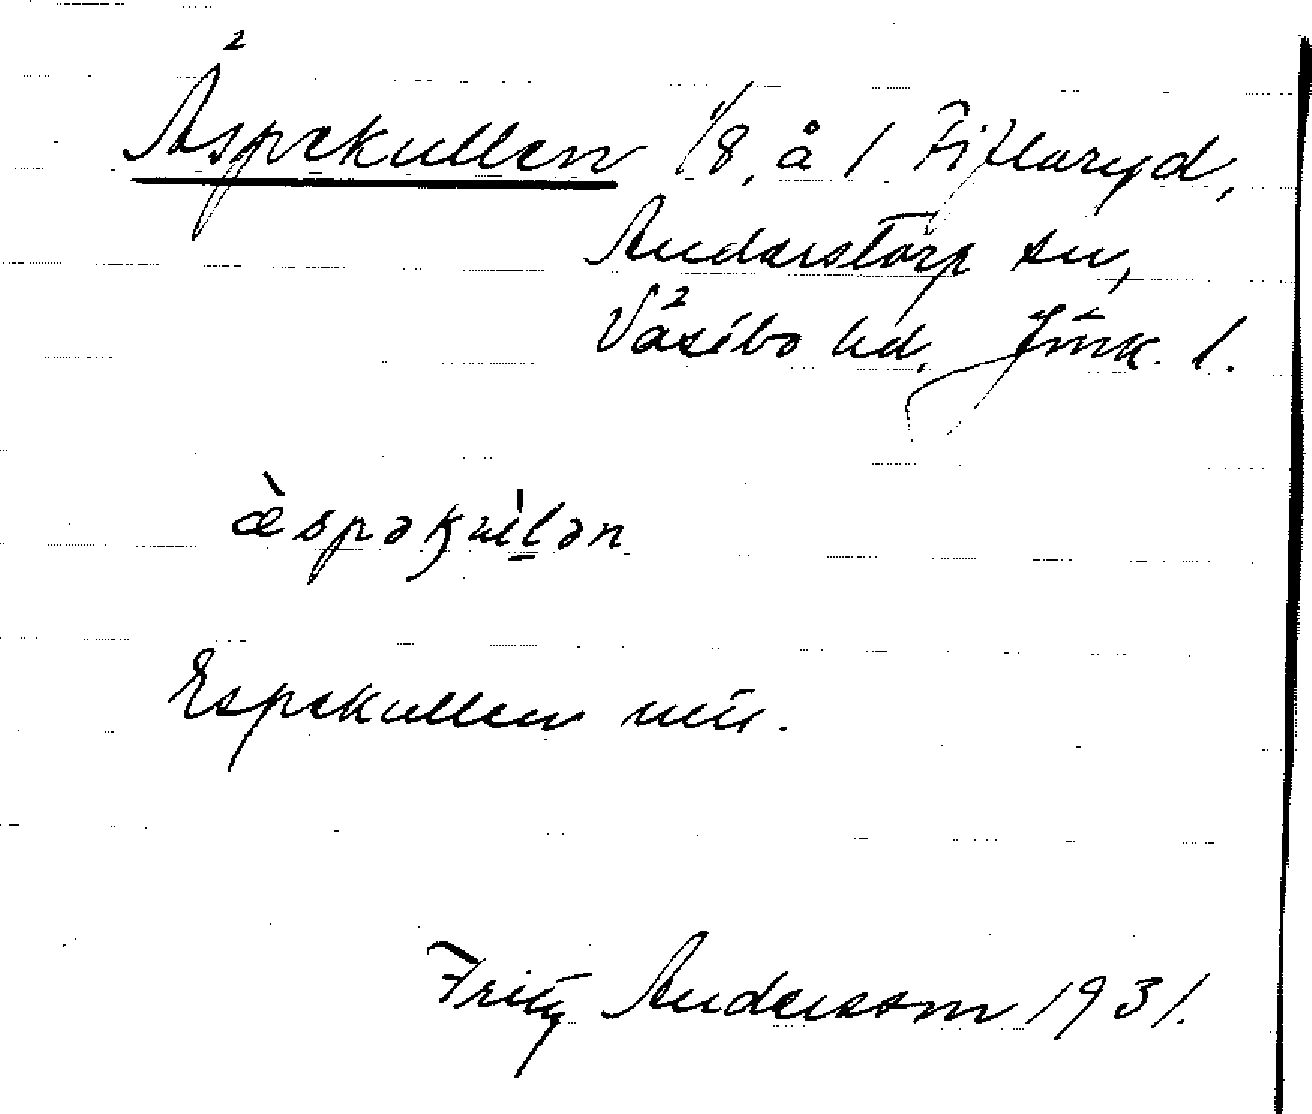 Äspekullen 1/8, å 1 Fiflaryd,
Anderstorp sn,
Västbo hd, Jönk. l.
æ̀spəku̍lən
Espekullen utt.
Fritz Andersson 1931.